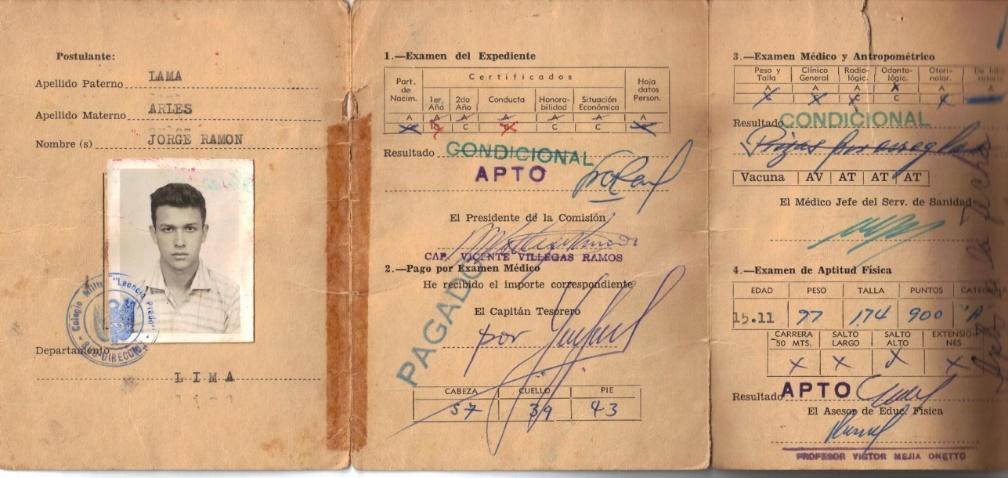 Postulante:
Apellido Paterno LAMA
Apellido Materno ARLES
Nombre (s) JORGE RAMON
Colegio Militar "Leoncio Prado"
SUB-DIRECCION
Departamento
LIMA
1.—Examen del Expediente
Part. de Nacim.
Certificados
Hoja datos Person.
1er. Año 2do Año Conducta Honora-bilidad Situación Económica
A A A A A
C C C
Resultado CONDICIONAL
APTO
El Presidente de la Comisión
CAP. VICENTE VILLEGAS RAMOS
2.—Pago por Examen Médico
He recibido el importe correspondiente
El Capitán Tesorero
PAGADO
por
CABEZA CUELLO PIE
57 39 43
3.—Examen Médico y Antropométrico
Peso y Talla Clínico General Radio-lógic. Odonto-lógic. Otorri-nolar.
A A A A
C
Resultado CONDICIONAL
Vacuna AV AT AT AT
El Médico Jefe del Serv. de Sanidad
4.—Examen de Aptitud Física
EDAD PESO TALLA PUNTOS
15.11 97 1,74 900 "A
CARRERA 50 MTS. SALTO LARGO SALTO ALTO EXTENSIO-NES
X X X X
Resultado APTO
El Asesor de Educ. Física
PROFESOR VICTOR MEJIA ONETTO